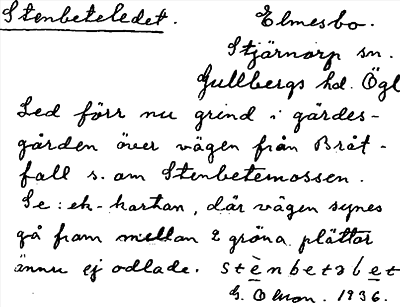 Stenbeteledet. Elmesbo.
Stjärnorp sn.
Gullbergs hd. Ögl
Led förr nu grind i gärdes-
gården över vägen från Bråt-
fall s. om Stenbetemossen.
Se: ek-kartan, där vägen synes
gå fram mellan 2 gröna plättar
ännu ej odlade. stènbetəlet
G. Olson. 1936.